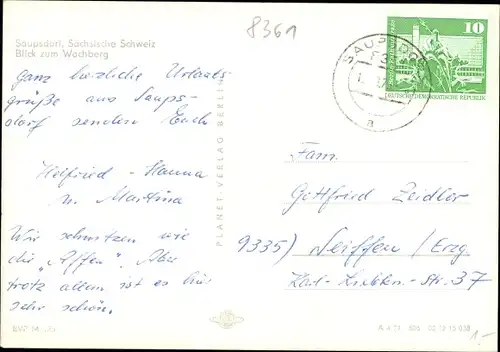 8361
Saupsdorf, Sächsische Schweiz
Blick zum Wachberg
Ganz herzliche Urlaubs-
grüße aus Saups-
dorf senden Euch
Helfried - Hanna
u. Martina
Wir schwitzen wie
die "Affen". Aber
trotz allem ist es hier
sehr schön.
PLANET-VERLAG BERLIN
SAUPSDORF
a
10
DEUTSCHE DEMOKRATISCHE REPUBLIK
Fam.
Gottfried Zeidler
9335) Seiffen/Erzg.
Karl-Liebkn.-Str. 37
1.-